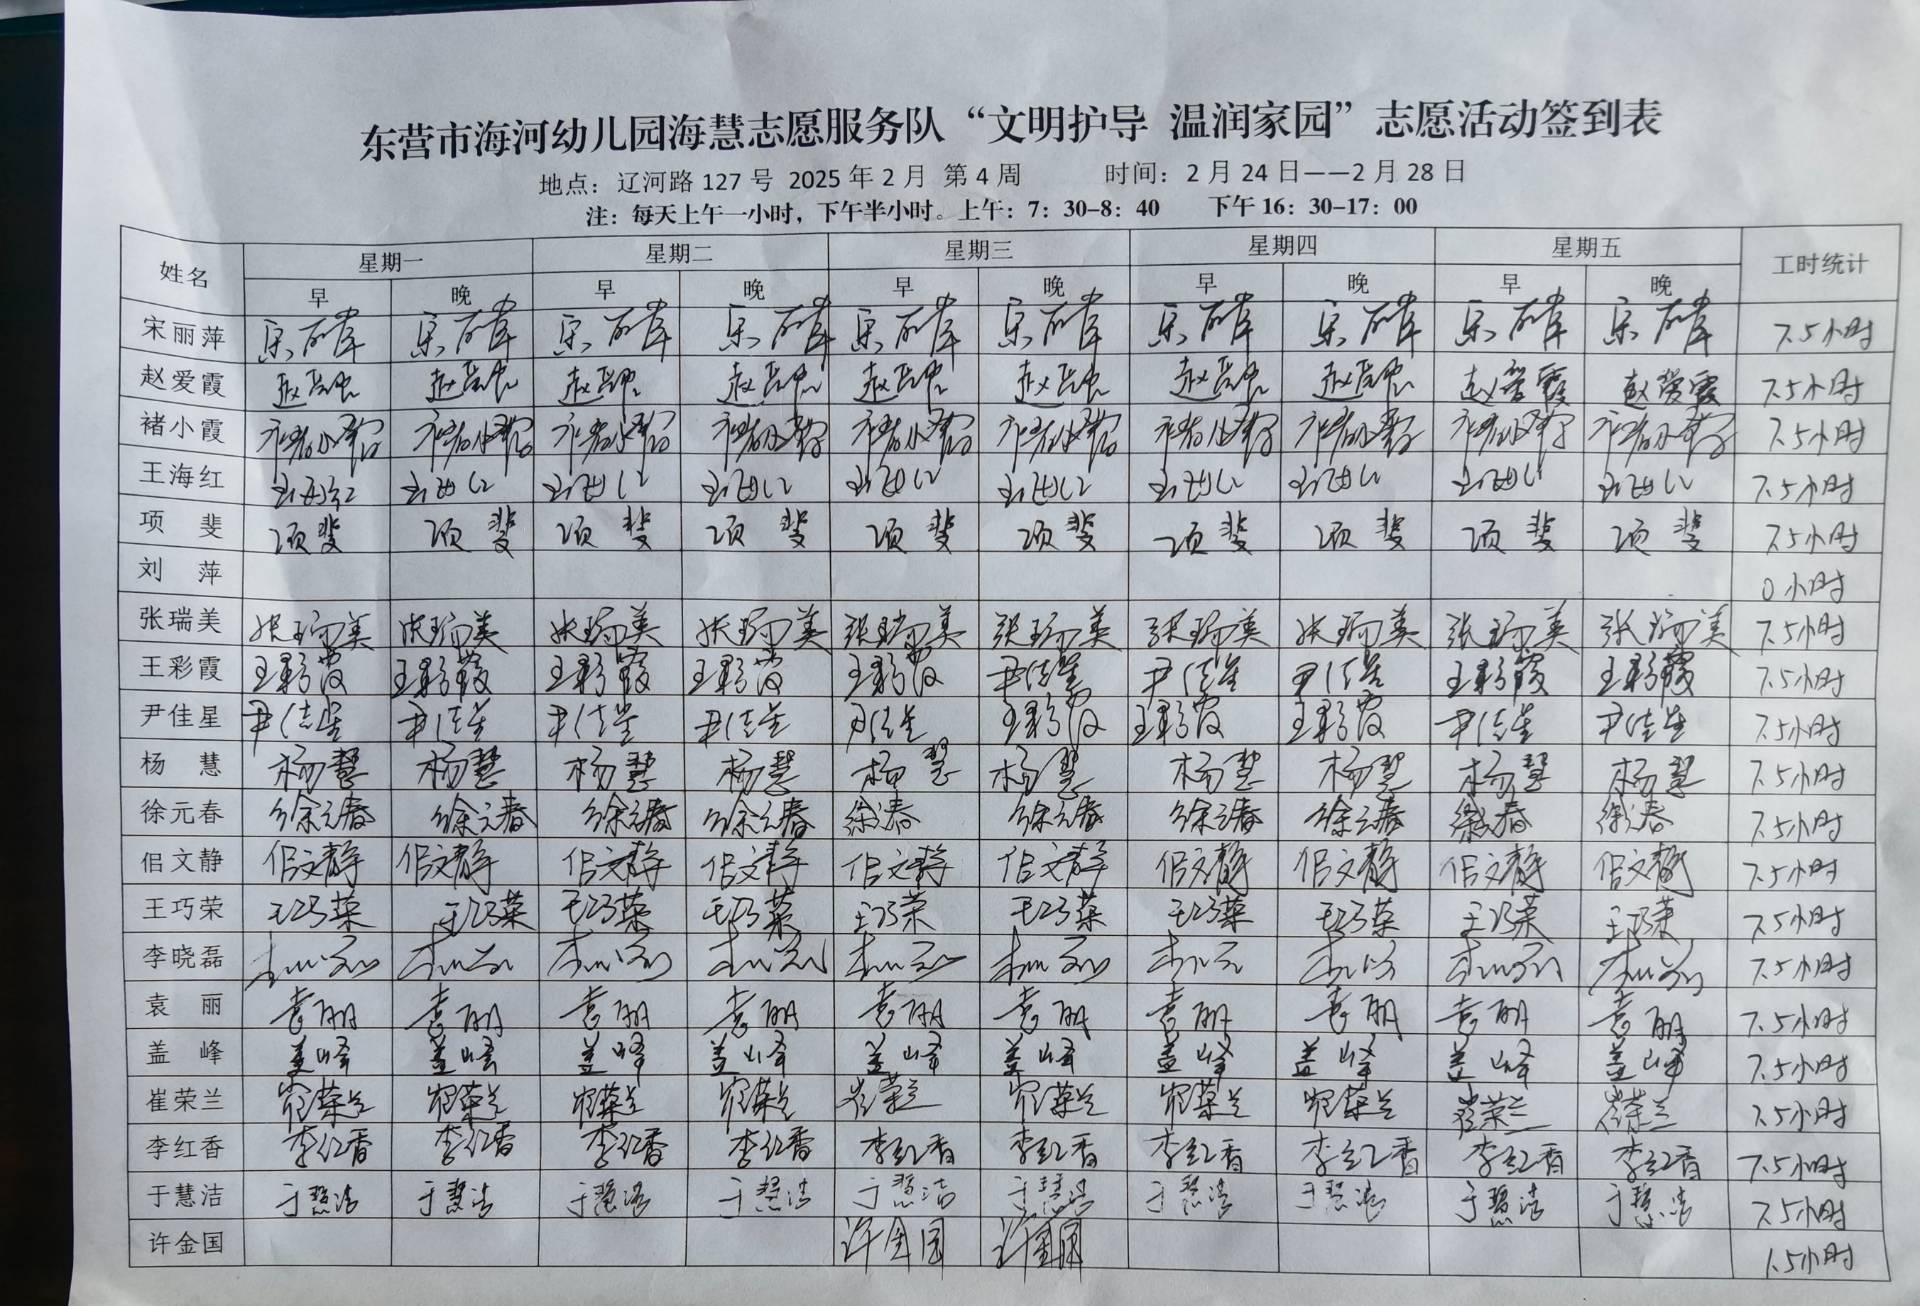 东营市海河幼儿园海慧志愿服务队“文明护导 温润家园”志愿活动签到表
地点：辽河路 127 号 2025 年 2 月 第 4 周 时间：2 月 24 日——2 月 28 日
注：每天上午一小时，下午半小时。上午：7：30-8：40 下午 16：30-17：00
姓名 星期一 星期二 星期三 星期四 星期五 工时统计
早 晚 早 晚 早 晚 早 晚 早 晚
宋丽萍 7.5小时
赵爱霞 赵爱霞 赵爱霞 7.5小时
褚小霞 褚小霞 褚小霞 褚小霞 褚小霞 褚小霞 褚小霞 褚小霞 褚小霞 褚小霞 褚小霞 7.5小时
王海红 7.5小时
项斐 项斐 项斐 项斐 项斐 项斐 项斐 项斐 项斐 项斐 项斐 7.5小时
刘萍 0小时
张瑞美 张瑞美 张瑞美 张瑞美 张瑞美 张瑞美 张瑞美 张瑞美 张瑞美 张瑞美 张瑞美 7.5小时
王彩霞 王彩霞 王彩霞 王彩霞 王彩霞 王彩霞 尹佳星 尹佳星 尹佳星 王彩霞 王彩霞 7.5小时
尹佳星 尹佳星 尹佳星 尹佳星 尹佳星 尹佳星 王彩霞 王彩霞 王彩霞 尹佳星 尹佳星 7.5小时
杨慧 杨慧 杨慧 杨慧 杨慧 杨慧 杨慧 杨慧 杨慧 杨慧 杨慧 7.5小时
徐元春 徐元春 徐元春 徐元春 徐元春 徐元春 徐元春 徐元春 徐元春 徐元春 徐元春 7.5小时
佀文静 佀文静 佀文静 佀文静 佀文静 佀文静 佀文静 佀文静 佀文静 佀文静 佀文静 7.5小时
王巧荣 王巧荣 王巧荣 王巧荣 王巧荣 王巧荣 王巧荣 王巧荣 王巧荣 王巧荣 王巧荣 7.5小时
李晓磊 7.5小时
袁丽 袁丽 袁丽 袁丽 袁丽 袁丽 袁丽 袁丽 袁丽 袁丽 袁丽 7.5小时
盖峰 盖峰 盖峰 盖峰 盖峰 盖峰 盖峰 盖峰 盖峰 盖峰 盖峰 7.5小时
崔荣兰 崔荣兰 崔荣兰 崔荣兰 崔荣兰 崔荣兰 崔荣兰 崔荣兰 崔荣兰 崔荣兰 崔荣兰 7.5小时
李红香 李红香 李红香 李红香 李红香 李红香 李红香 李红香 李红香 李红香 李红香 7.5小时
于慧洁 于慧洁 于慧洁 于慧洁 于慧洁 于慧洁 于慧洁 于慧洁 于慧洁 于慧洁 于慧洁 7.5小时
许金国 许金国 许金国 1.5小时